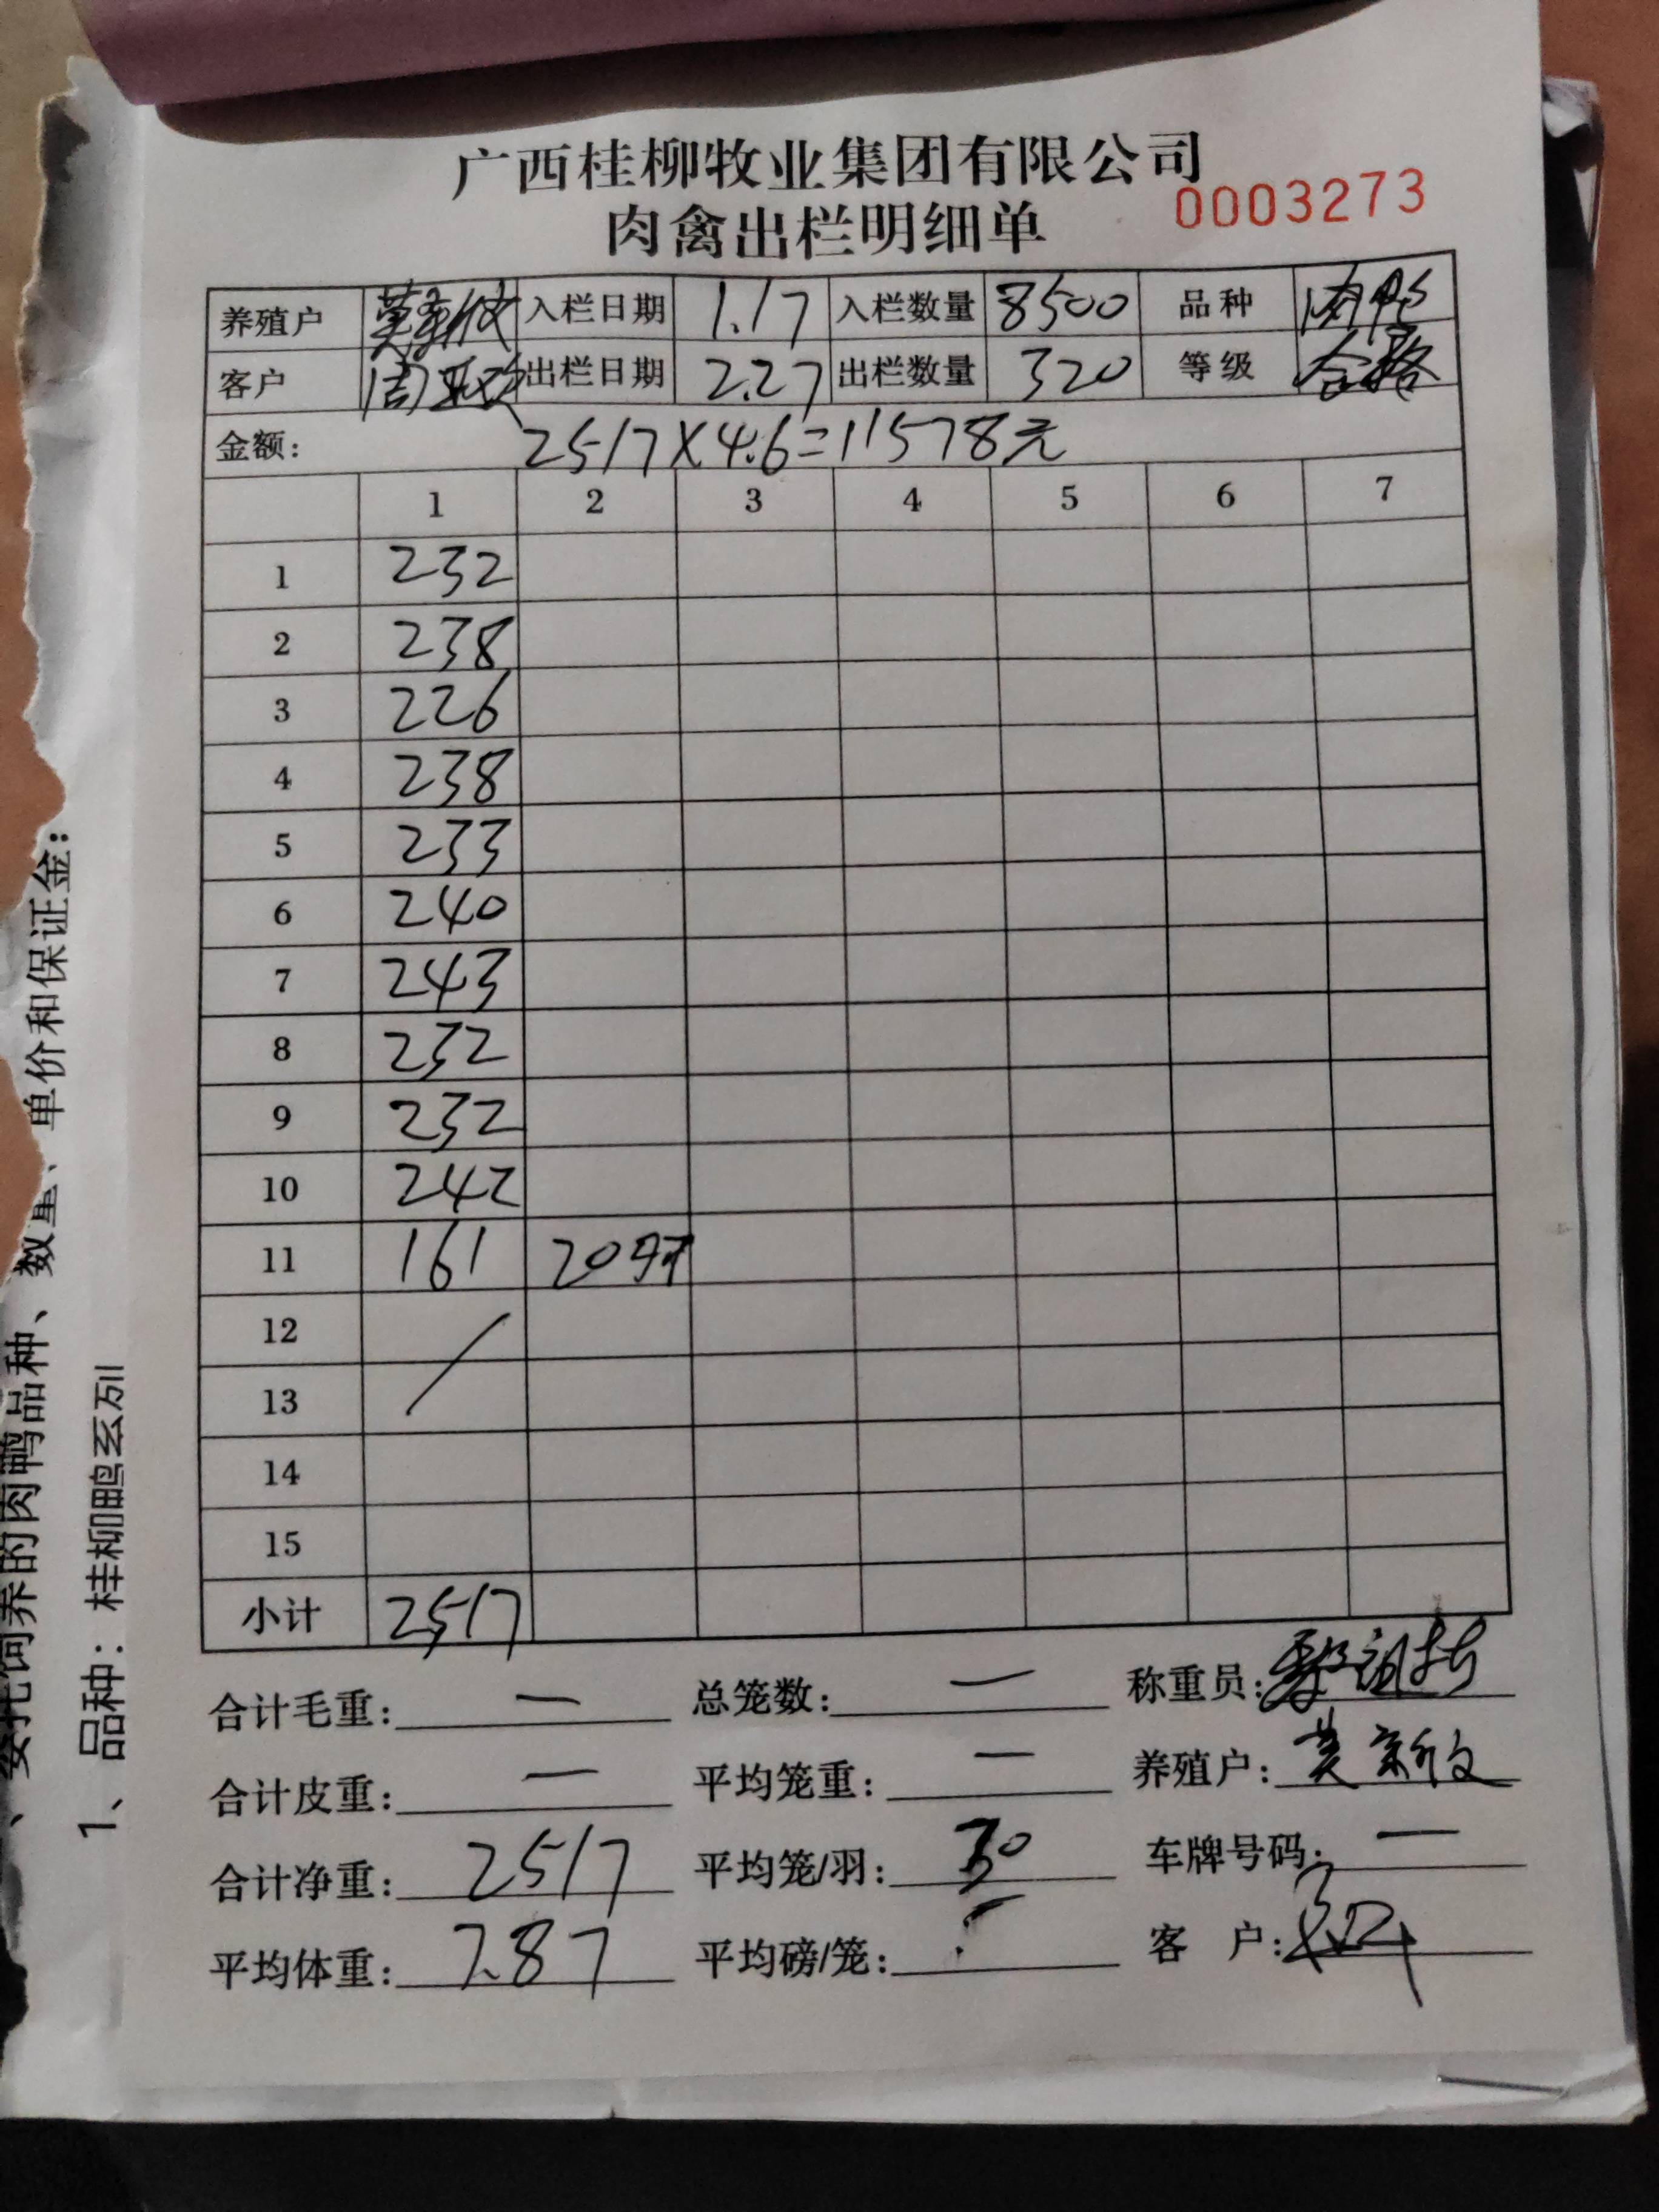 广西桂柳牧业集团有限公司
肉禽出栏明细单 0003273
养殖户 莫新文 入栏日期 1.17 入栏数量 8500 品种 肉鸭
客户 出栏日期 2.27 出栏数量 320 等级 合格
金额: 2517×4.6=11578元
1 2 3 4 5 6 7
1 232
2 238
3 226
4 238
5 233
6 240
7 243
8 232
9 232
10 242
11 161
12
13
14
15
小计 2517
合计毛重: — 总笼数: — 称重员:
合计皮重: — 平均笼重: — 养殖户: 莫新文
合计净重: 2517 平均笼/羽: 30 车牌号码: —
平均体重: 7.87 平均磅/笼: 客 户:
、委托饲养的肉鸭品种、数量、单价和保证金:
1、品种: 桂柳鸭系列